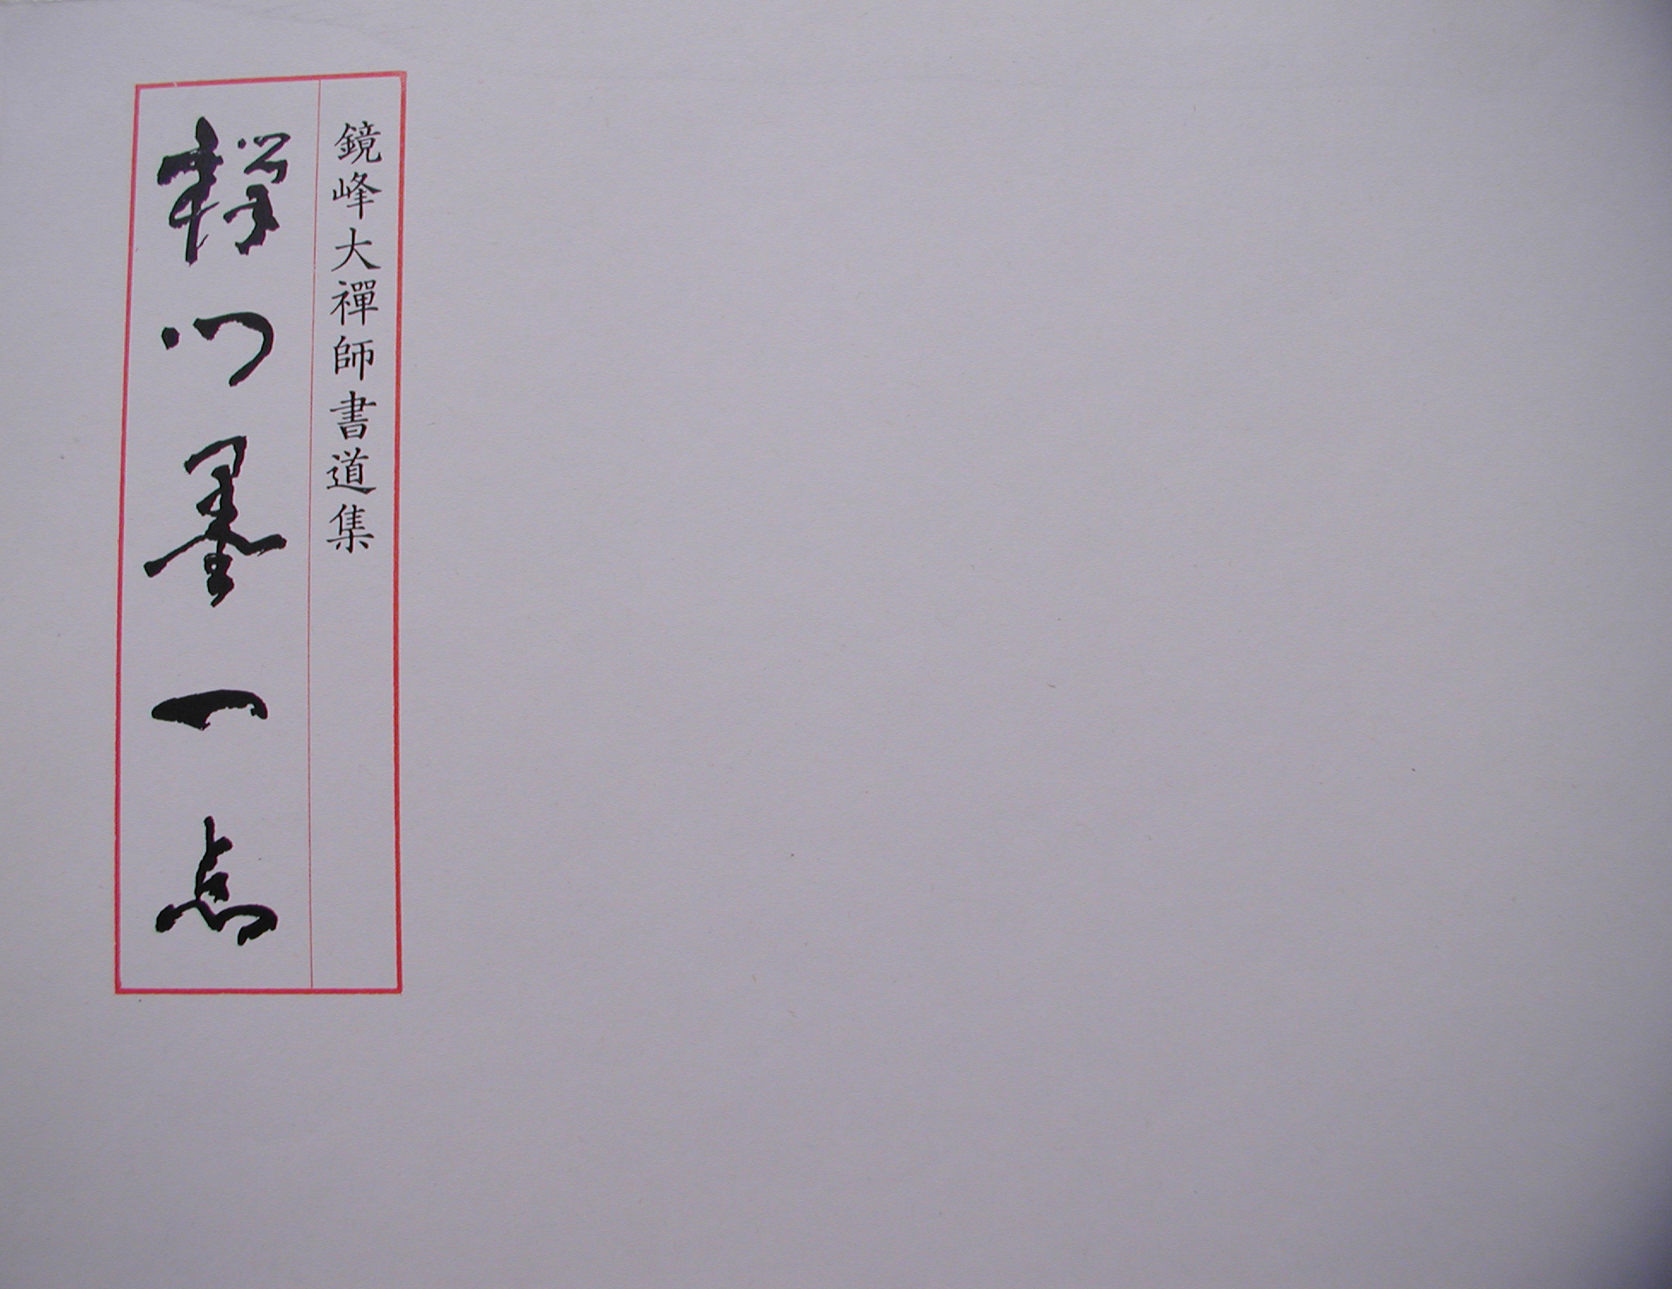 鏡峰大禪師書道集
釋门墨一点